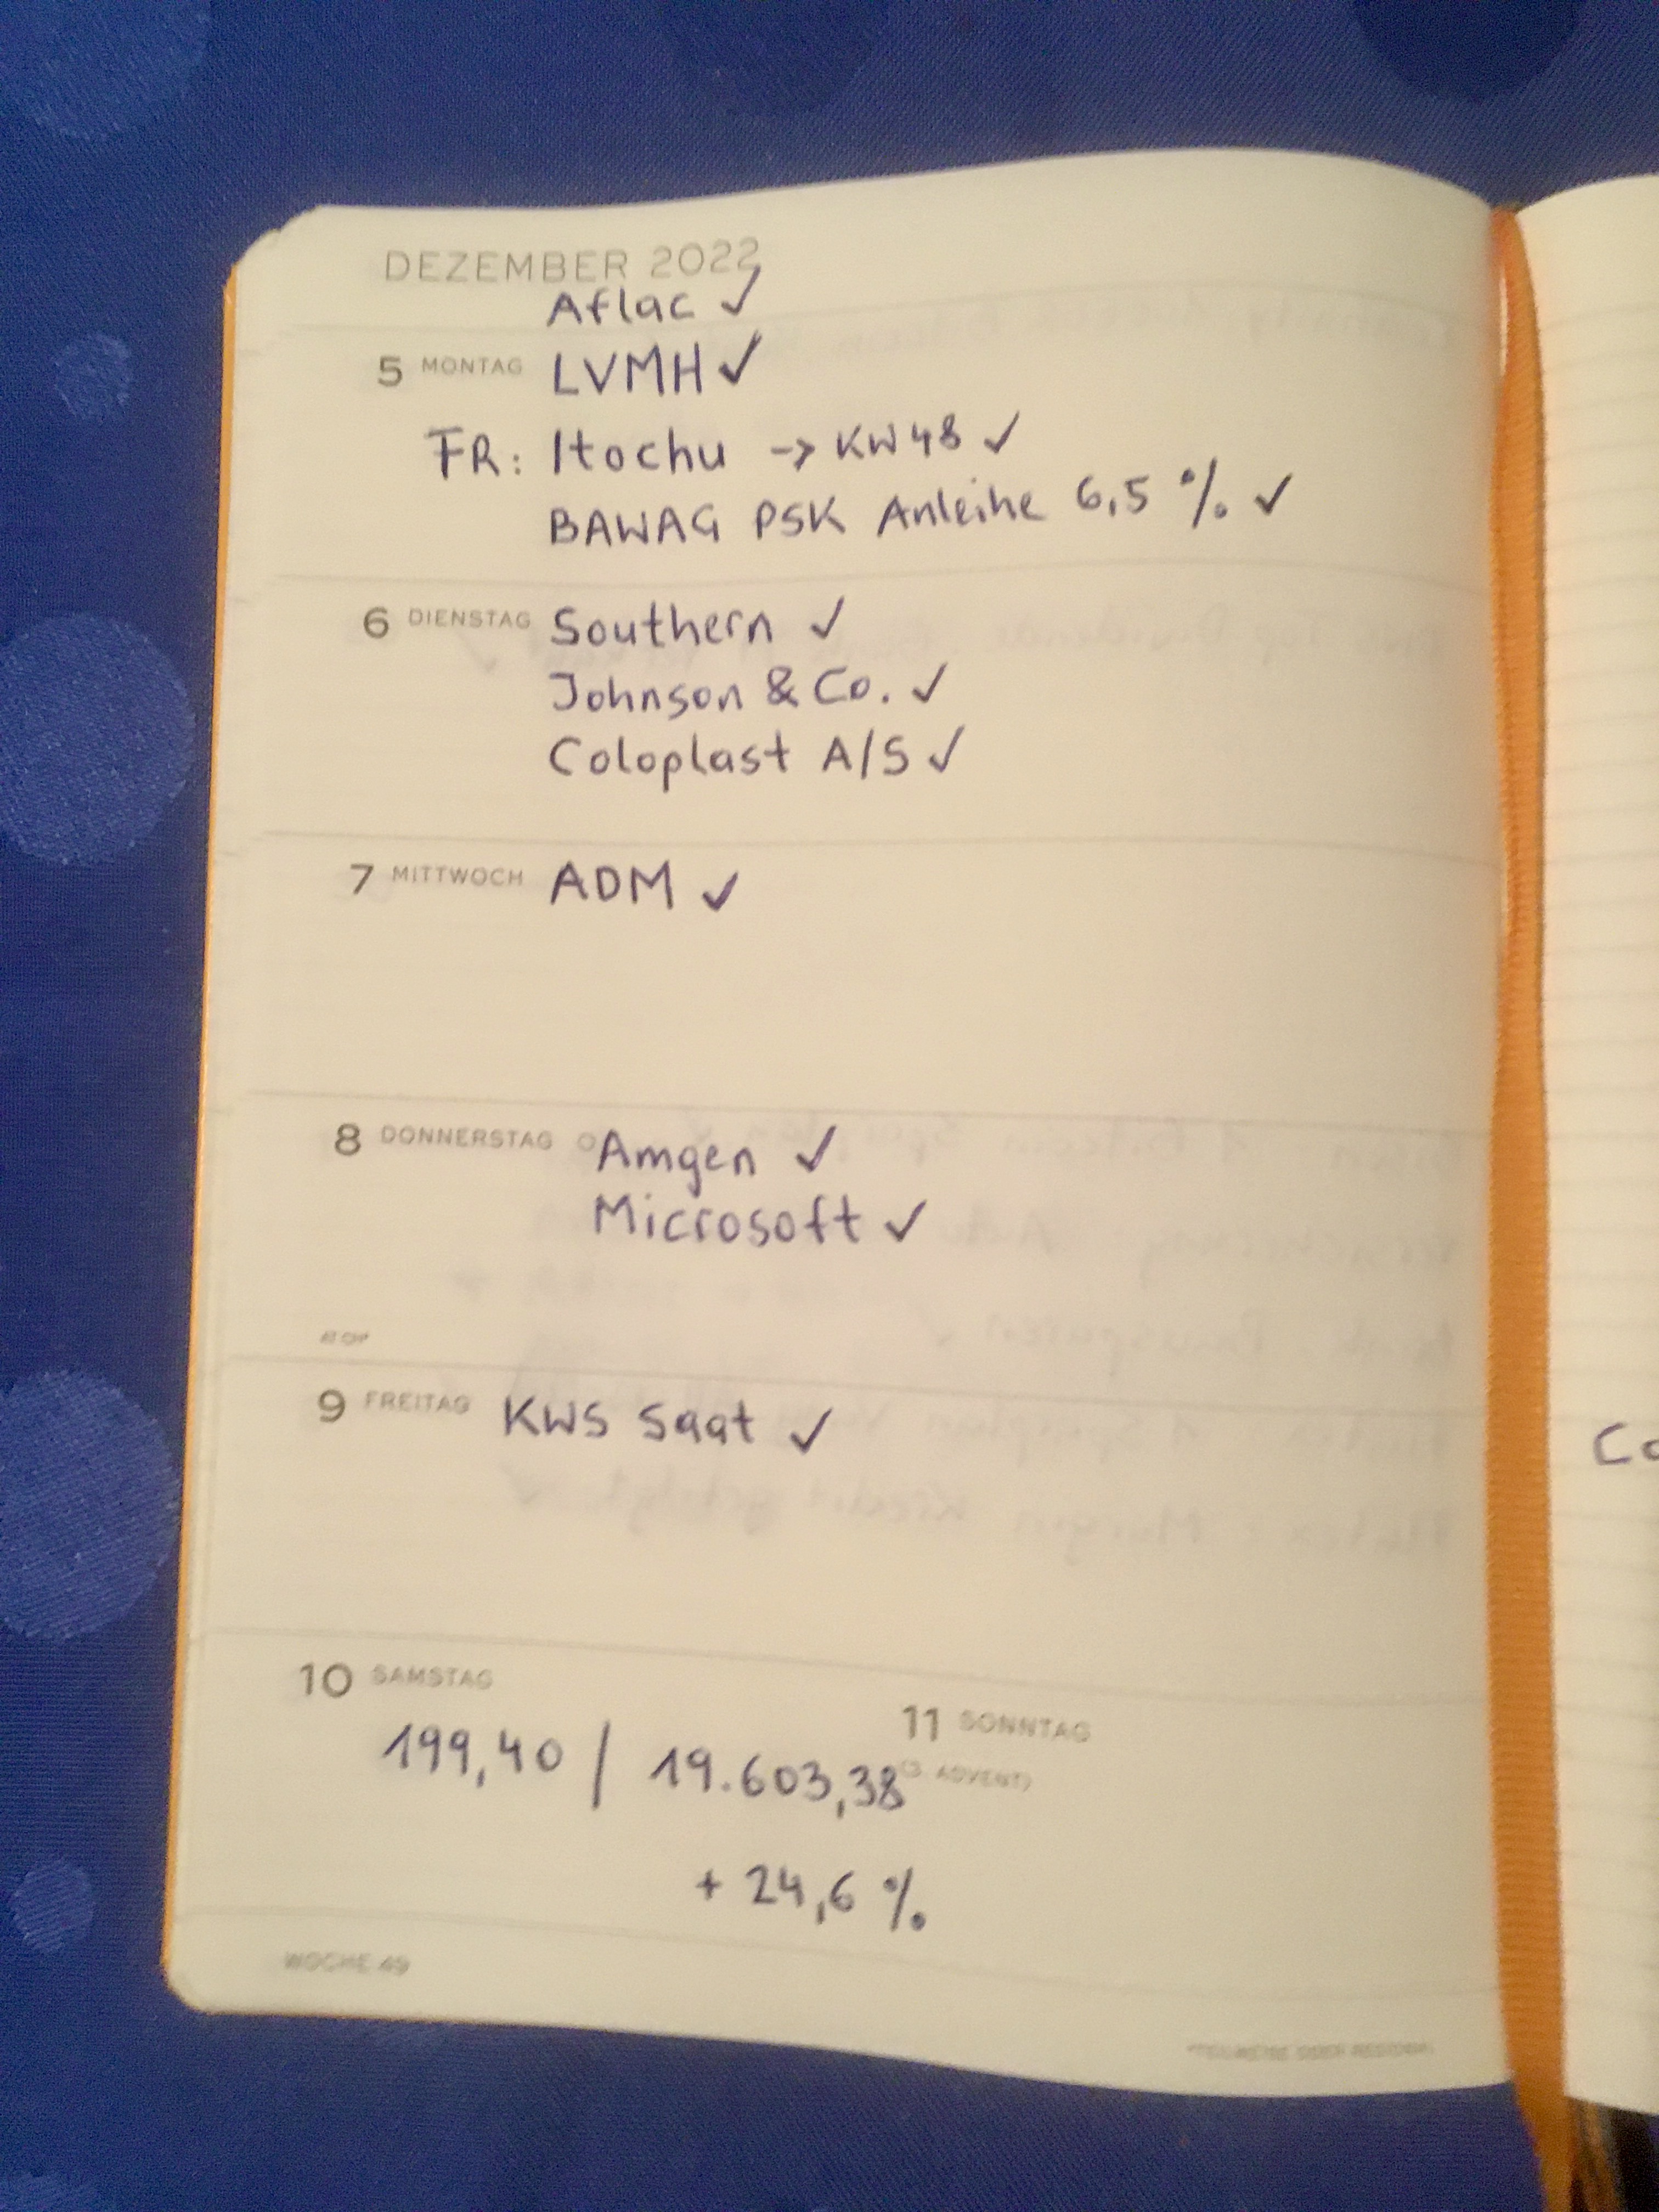 DEZEMBER 2022
Aflac ✓
5 MONTAG LVMH ✓
FR: Itochu → KW48 ✓
BAWAG PSK Anleihe 6,5 % ✓
6 DIENSTAG Southern ✓
Johnson & Co. ✓
Coloplast A/S ✓
7 MITTWOCH ADM ✓
8 DONNERSTAG Amgen ✓
Microsoft ✓
AT CH*
9 FREITAG KWS Saat ✓
10 SAMSTAG
11 SONNTAG
(3. ADVENT)
199,40 / 19.603,38
+ 24,6 %
WOCHE 49
Co